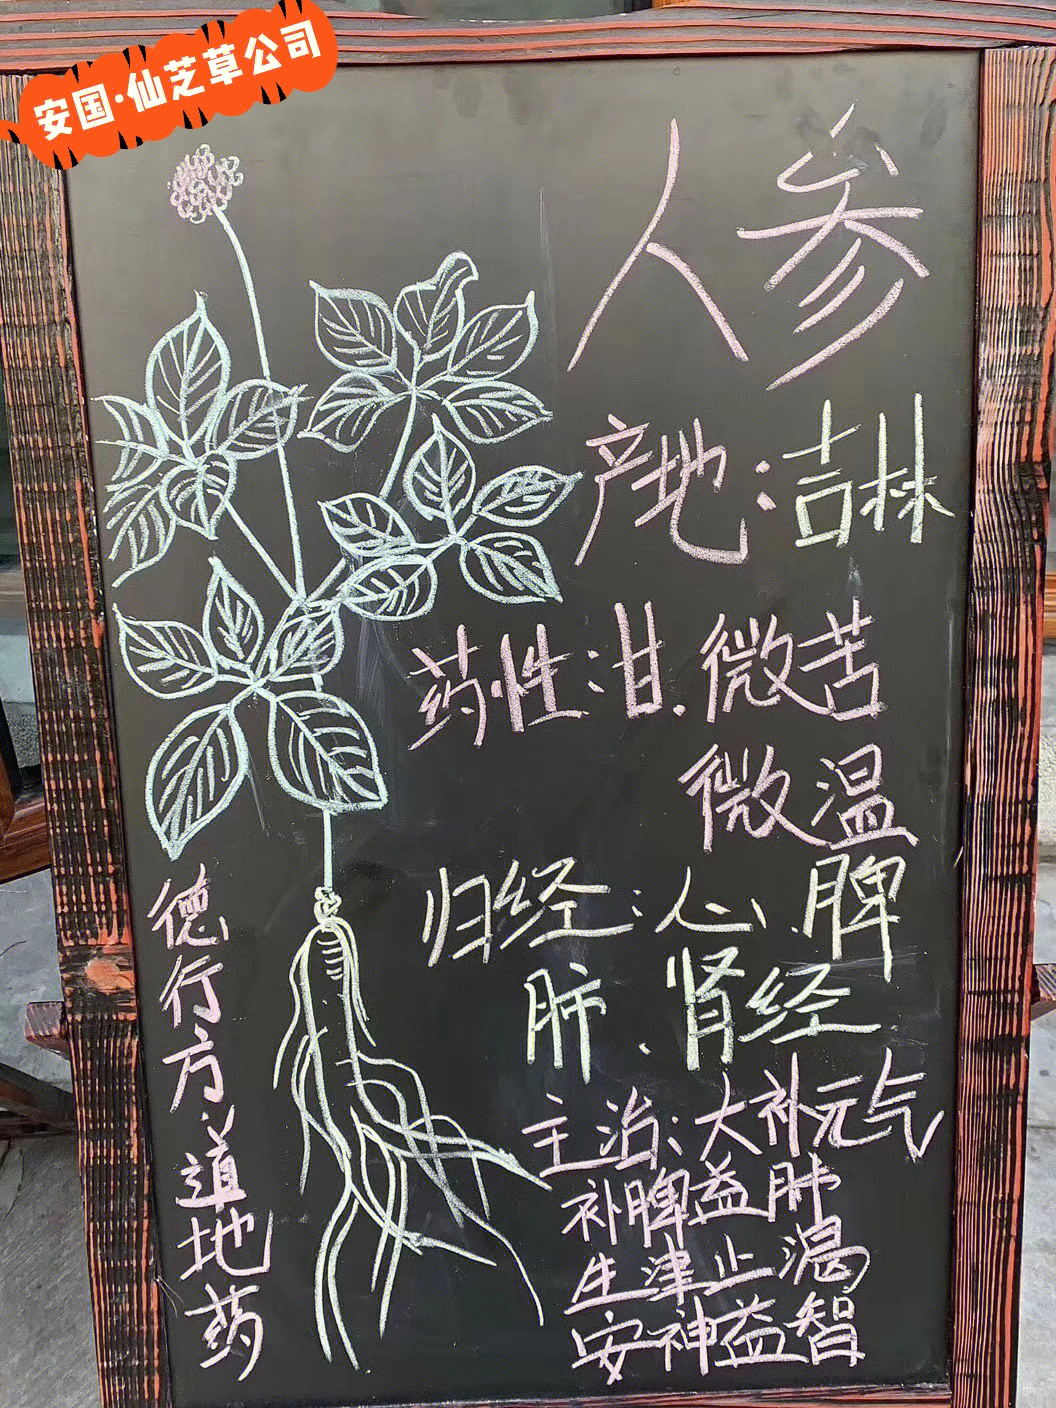 安国·仙芝草公司
人参
产地：吉林
药性：甘.微苦
微温
归经：心.脾
肺.肾经
主治：大补元气
补脾益肺
生津止渴
安神益智
德行方，道地药